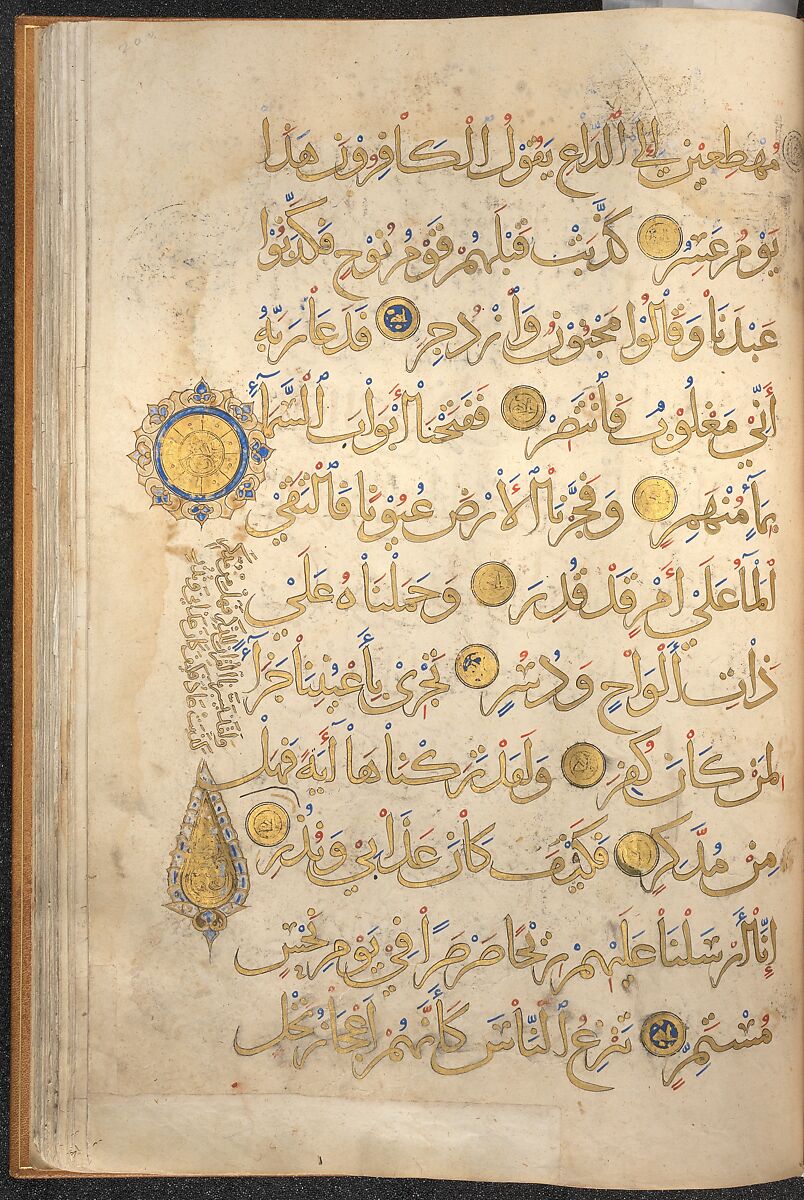 مُهْطِعِينَ إِلَى الدَّاعِ يَقُولُ الْكَافِرُونَ هَذَا
يَوْمٌ عَسِرٌ كَذَّبَتْ قَبْلَهُمْ قَوْمُ نُوحٍ فَكَذَّبُوا
عَبْدَنَا وَقَالُوا مَجْنُونٌ وَازْدُجِرَ فَدَعَا رَبَّهُ
أَنِّي مَغْلُوبٌ فَانْتَصِرْ فَفَتَحْنَا أَبْوَابَ السَّمَاءِ
بِمَاءٍ مُنْهَمِرٍ وَفَجَّرْنَا الْأَرْضَ عُيُونًا فَالْتَقَى
الْمَاءُ عَلَى أَمْرٍ قَدْ قُدِرَ وَحَمَلْنَاهُ عَلَى
ذَاتِ أَلْوَاحٍ وَدُسُرٍ تَجْرِي بِأَعْيُنِنَا جَزَاءً
لِمَنْ كَانَ كُفِرَ وَلَقَدْ تَرَكْنَاهَا آيَةً فَهَلْ
مِنْ مُدَّكِرٍ فَكَيْفَ كَانَ عَذَابِي وَنُذُرِ
إِنَّا أَرْسَلْنَا عَلَيْهِمْ رِيحًا صَرْصَرًا فِي يَوْمِ نَحْسٍ
مُسْتَمِرٍّ تَنْزِعُ النَّاسَ كَأَنَّهُمْ أَعْجَازُ نَخْلٍ
ولقد يسرنا القرآن للذكر فهل من مدكر
كذبت عاد فكيف كان عذابي ونذر